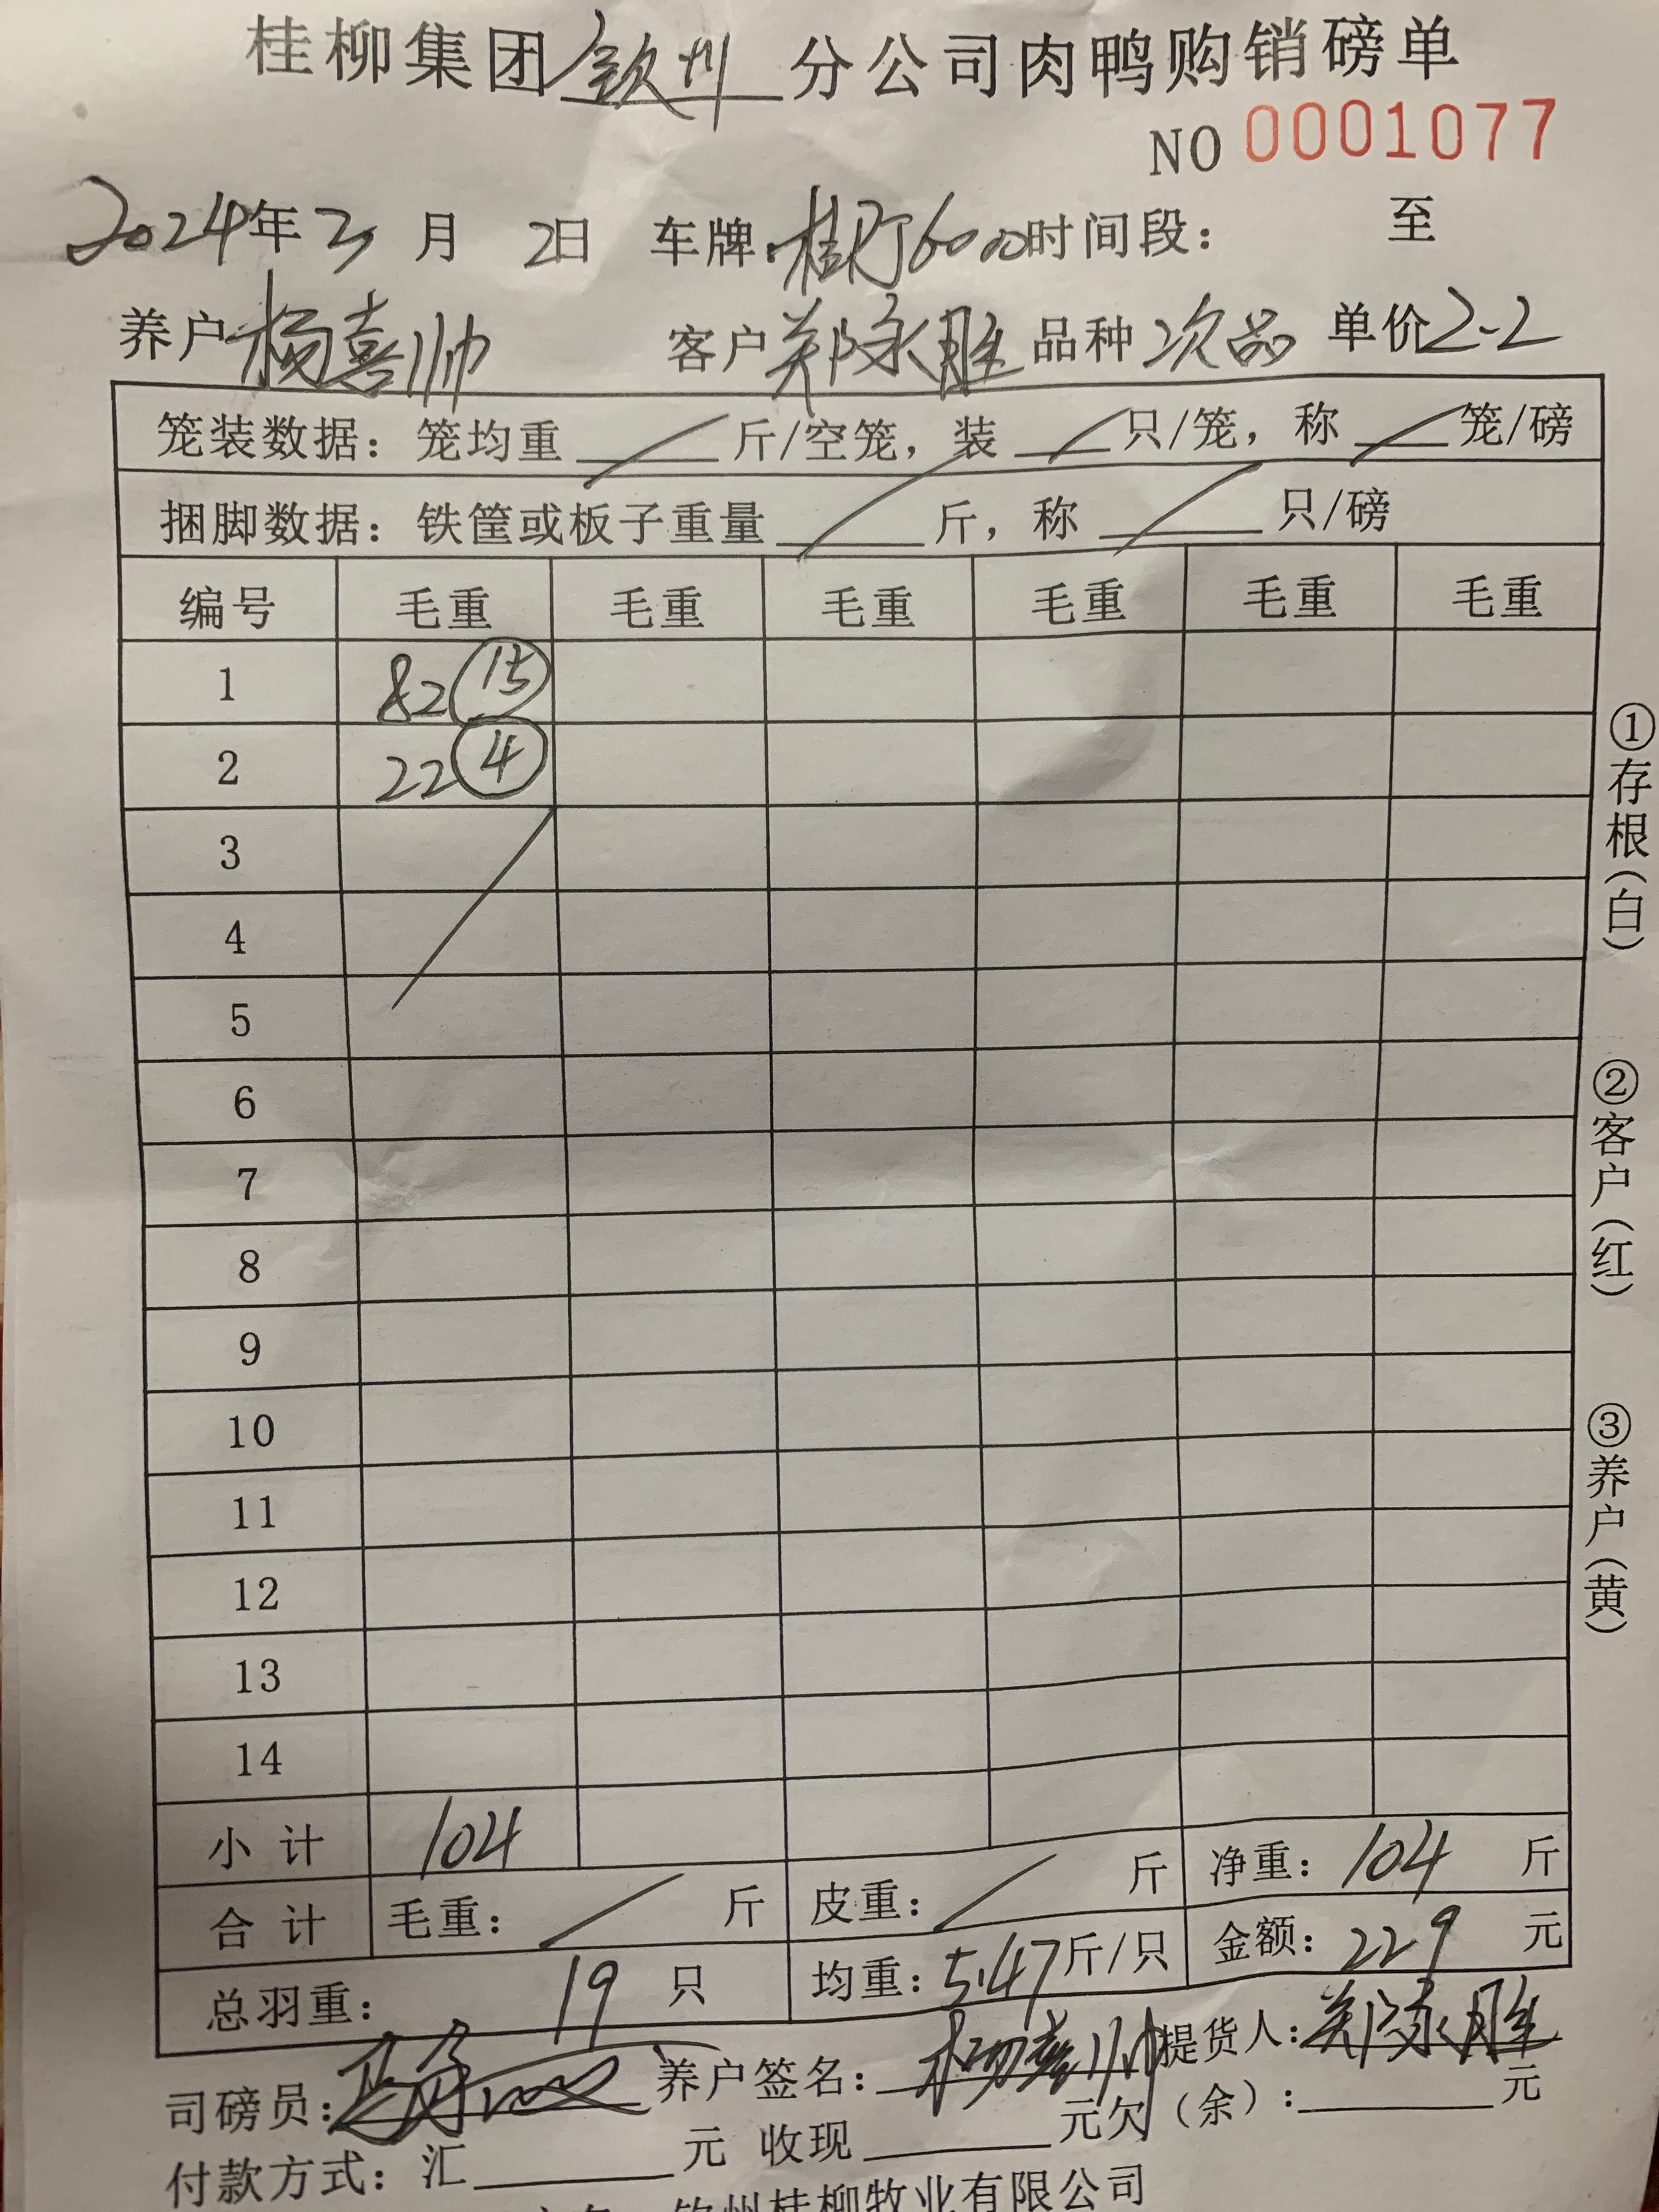 桂柳集团钦州分公司肉鸭购销磅单
NO 0001077
2024年3月2日 车牌:桂 6000 时间段: 至
养户 杨喜帅 客户 郑永胜 品种 次品 单价 2-2
笼装数据：笼均重 斤/空笼，装 只/笼，称 笼/磅
捆脚数据：铁筐或板子重量 斤，称 只/磅
编号 毛重 毛重 毛重 毛重 毛重 毛重
1 82 15
2 22 4
3
4
5
6
7
8
9
10
11
12
13
14
小计 104
合计 毛重： / 斤 皮重： / 斤 净重：104 斤
总羽重： 19 只 均重：5.47 斤/只 金额：229 元
司磅员： 养户签名：杨喜帅 提货人：郑永胜
付款方式：汇 元 收现 元欠（余）: 元
钦州桂柳牧业有限公司
①存根（白）
②客户（红）
③养户（黄）